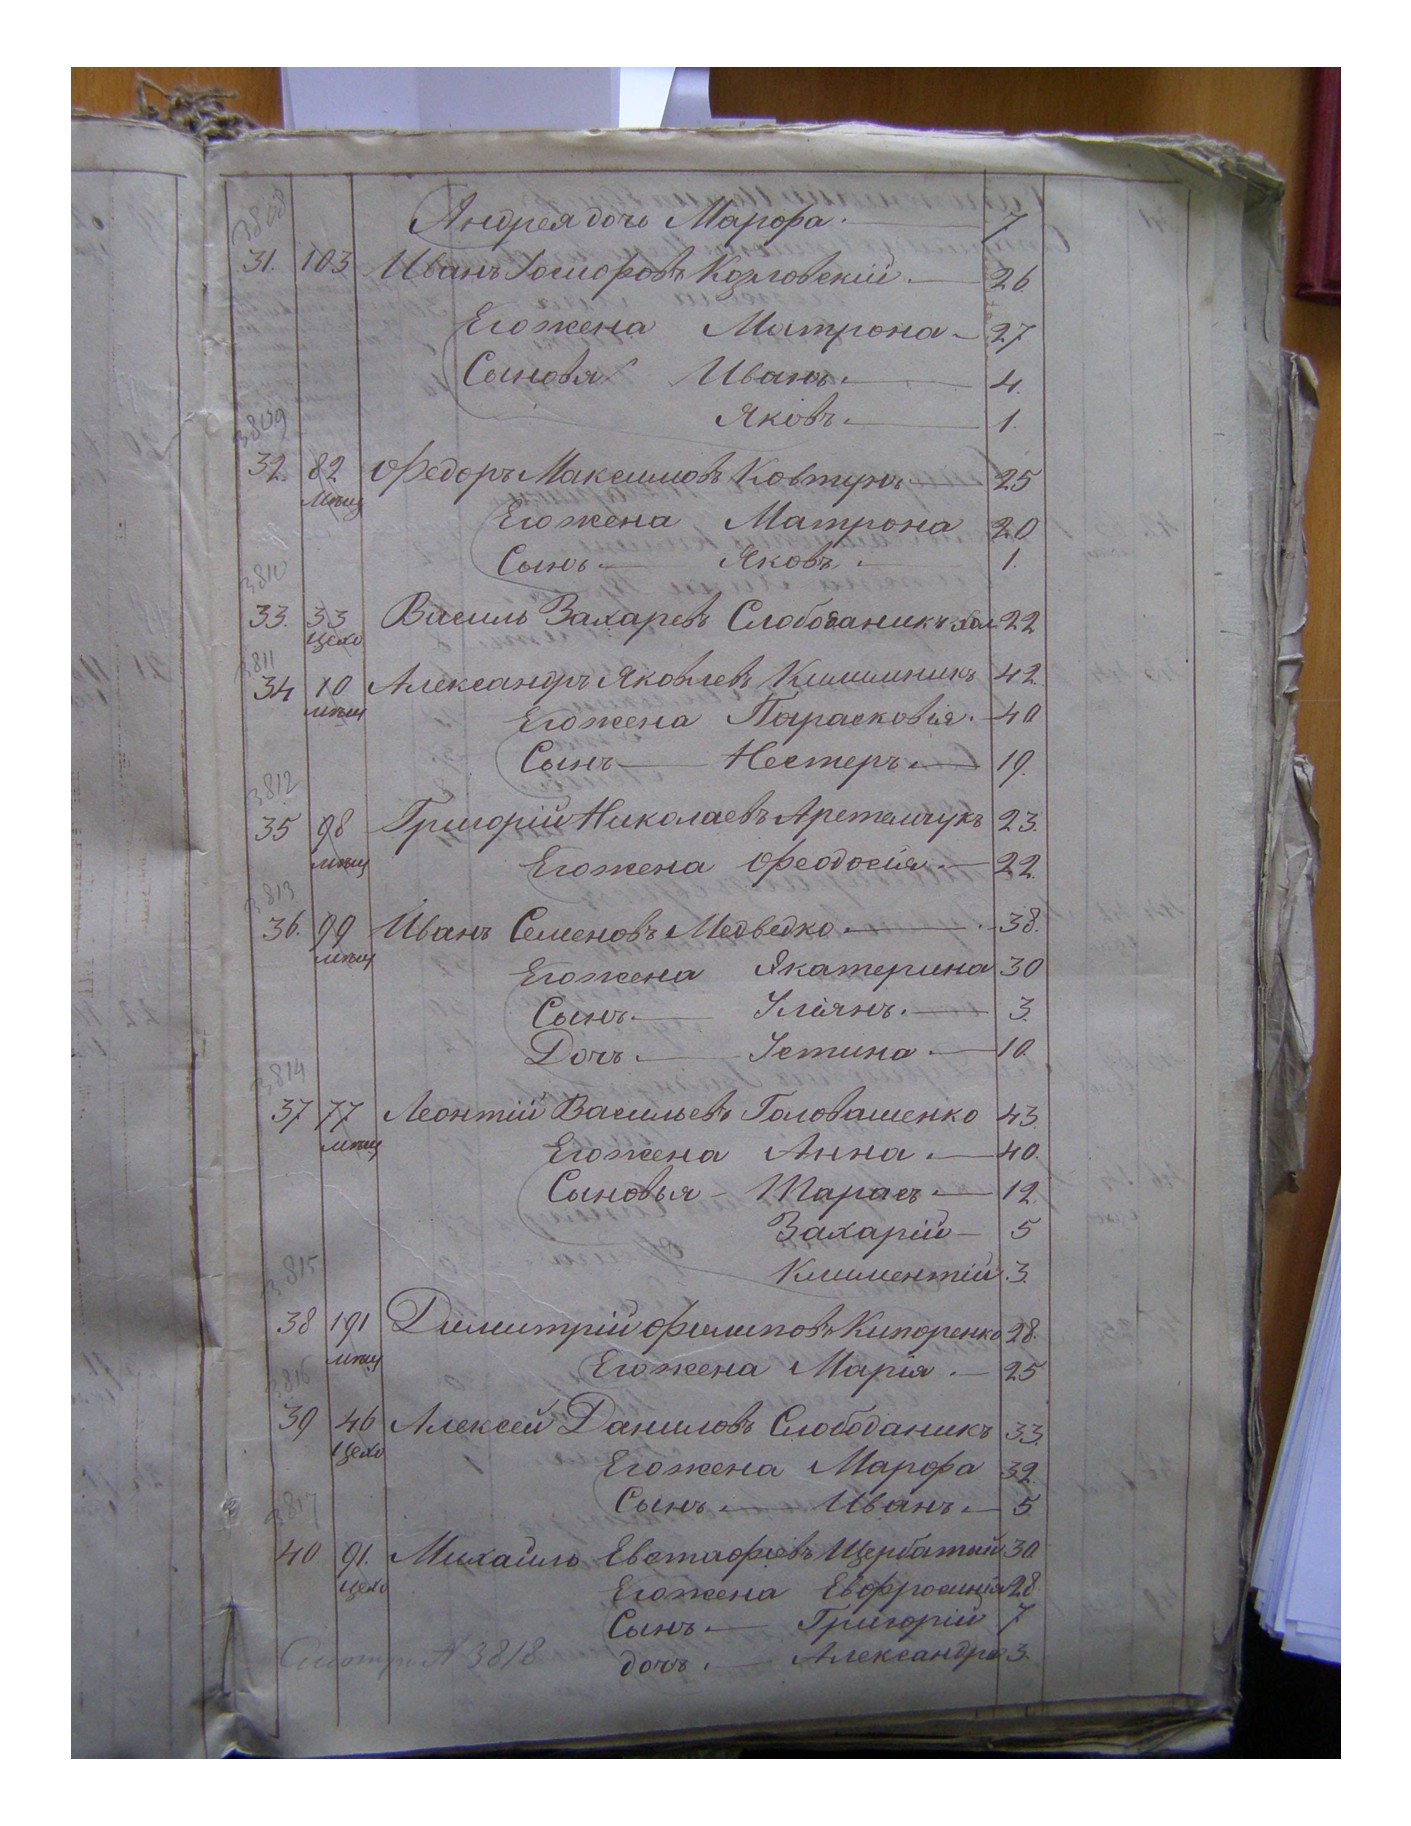 Андрея дочь Марѳа. 7
3808
31. 103 Иванъ Іосифовъ Козловскій. 26
Его жена Матрона 27
Сыновья Иванъ. 4.
Яковъ. 1.
3809
32. 82 Ѳедоръ Максимовъ Ковтунъ 25
мѣщ
Его жена Матрона 20
Сынъ. Яковъ. 1.
3810
33. 33 Василь Захаревъ Слободаникъ хол 22
цехо
3811
34 10 Александръ Яковлевъ Климникъ 42.
мѣщ
Его жена Парасковія. 40
Сынъ Нестеръ. 19.
3812
35 98 Григорій Николаевъ Аретемчукъ 23.
мѣщ
Его жена Ѳеодосія. 22.
3813
36. 99 Иванъ Семеновъ Медведко. 38.
мѣщ
Его жена Якатерина 30
Сынъ. Уліянъ. 3.
Дочь. Устина. 10.
3814
37 77 Леонтій Васильевъ Головашенко 43.
мѣщ
Его жена Анна. 40.
Сыновья Тарасъ. 12.
Захарій 5
Климентій. 3.
3815
38 191 Димитрій Филиповъ Кипоренко 28.
мѣщ
Его жена Марія. 25
3816
39 46 Алексей Даниловъ Слободаникъ 33.
цехо
Его жена Марѳа 32.
Сынъ. Иванъ. 5
3817
40 91. Михаилъ Евстафіевъ Щербатый 30
цехо
Его жена Евфросинія 28.
Сынъ. Григорій 7
дочь. Александра 3.
Смотри N 3818